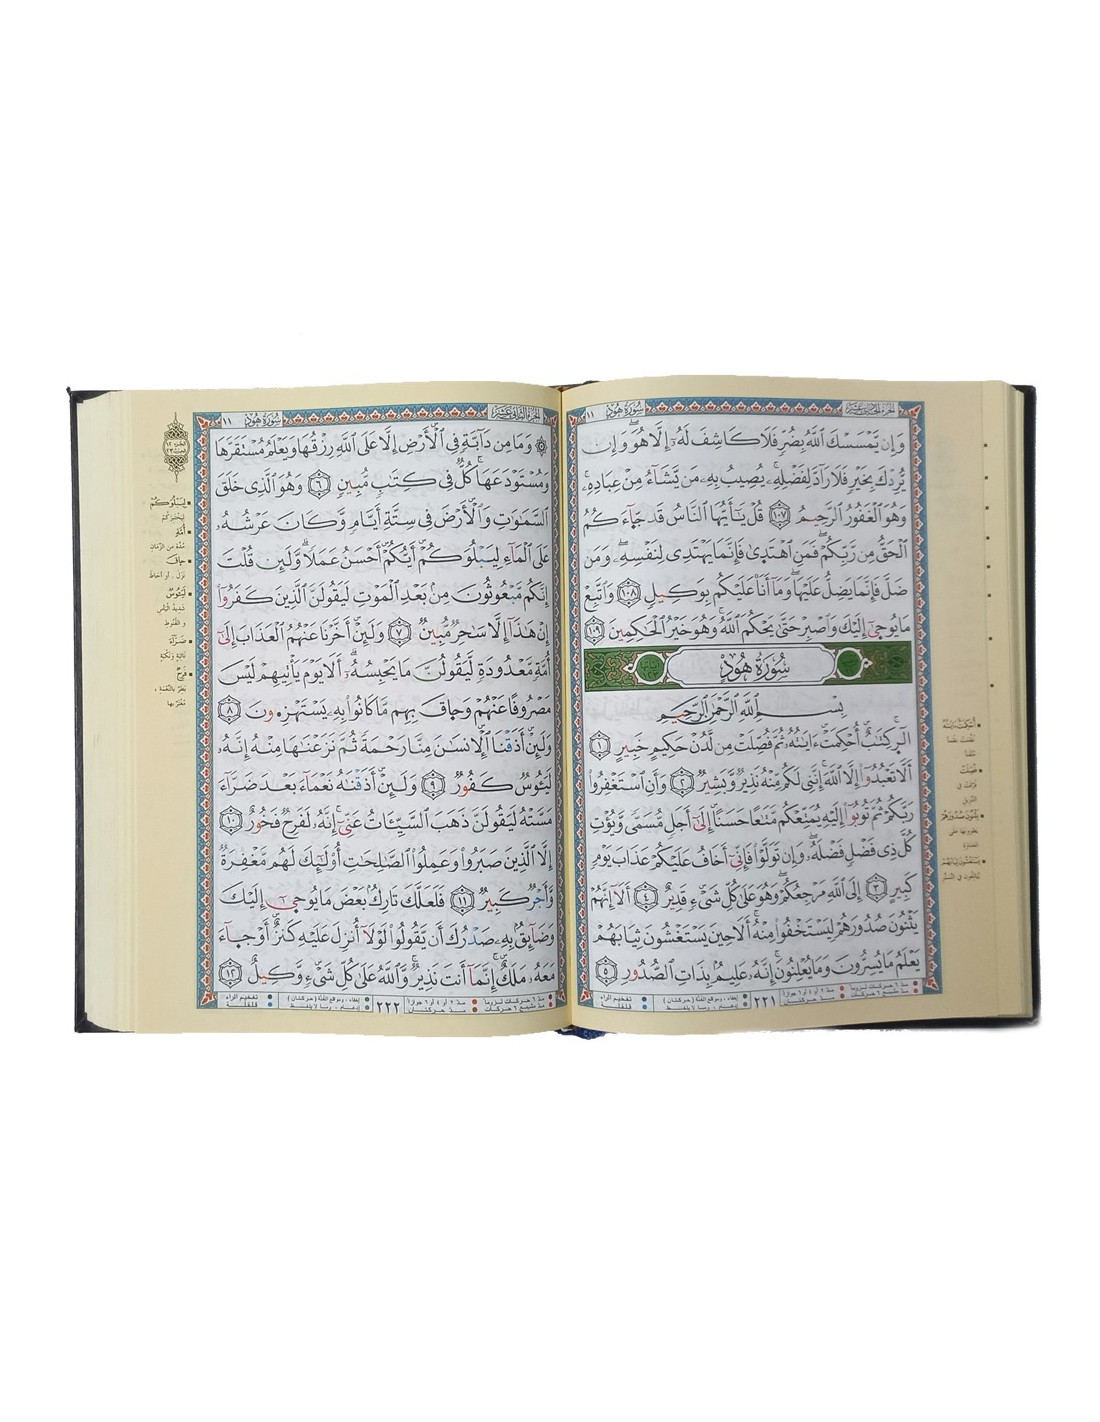 الجزء الحادي عشر
سورة هود ١١
وَإِن يَمْسَسْكَ ٱللَّهُ بِضُرٍّ فَلَا كَاشِفَ لَهُۥٓ إِلَّا هُوَ ۖ وَإِن
يُرِدْكَ بِخَيْرٍ فَلَا رَآدَّ لِفَضْلِهِۦ ۚ يُصِيبُ بِهِۦ مَن يَشَآءُ مِنْ عِبَادِهِۦ ۚ
وَهُوَ ٱلْغَفُورُ ٱلرَّحِيمُ ١٠٧ قُلْ يَٰٓأَيُّهَا ٱلنَّاسُ قَدْ جَآءَكُمُ
ٱلْحَقُّ مِن رَّبِّكُمْ ۖ فَمَنِ ٱهْتَدَىٰ فَإِنَّمَا يَهْتَدِى لِنَفْسِهِۦ ۖ وَمَن
ضَلَّ فَإِنَّمَا يَضِلُّ عَلَيْهَا ۖ وَمَآ أَنَا۠ عَلَيْكُم بِوَكِيلٍ ١٠٨ وَٱتَّبِعْ
مَا يُوحَىٰٓ إِلَيْكَ وَٱصْبِرْ حَتَّىٰ يَحْكُمَ ٱللَّهُ ۚ وَهُوَ خَيْرُ ٱلْحَٰكِمِينَ ١٠٩
سُورَةُ هُودٍ
بِسْمِ ٱللَّهِ ٱلرَّحْمَٰنِ ٱلرَّحِيمِ
الٓر ۚ كِتَٰبٌ أُحْكِمَتْ ءَايَٰتُهُۥ ثُمَّ فُصِّلَتْ مِن لَّدُنْ حَكِيمٍ خَبِيرٍ ١
أَلَّا تَعْبُدُوٓا۟ إِلَّا ٱللَّهَ ۚ إِنَّنِى لَكُم مِّنْهُ نَذِيرٌ وَبَشِيرٌ ٢ وَأَنِ ٱسْتَغْفِرُوا۟
رَبَّكُمْ ثُمَّ تُوبُوٓا۟ إِلَيْهِ يُمَتِّعْكُم مَّتَٰعًا حَسَنًا إِلَىٰٓ أَجَلٍ مُّسَمًّى وَيُؤْتِ
كُلَّ ذِى فَضْلٍ فَضْلَهُۥ ۖ وَإِن تَوَلَّوْا۟ فَإِنِّىٓ أَخَافُ عَلَيْكُمْ عَذَابَ يَوْمٍ
كَبِيرٍ ٣ إِلَى ٱللَّهِ مَرْجِعُكُمْ ۖ وَهُوَ عَلَىٰ كُلِّ شَىْءٍ قَدِيرٌ ٤ أَلَآ إِنَّهُمْ
يَثْنُونَ صُدُورَهُمْ لِيَسْتَخْفُوا۟ مِنْهُ ۚ أَلَا حِينَ يَسْتَغْشُونَ ثِيَابَهُمْ
يَعْلَمُ مَا يُسِرُّونَ وَمَا يُعْلِنُونَ ۚ إِنَّهُۥ عَلِيمٌۢ بِذَاتِ ٱلصُّدُورِ ٥
أُحْكِمَتْ آيَاتُهُ
فُصِّلَتْ
يَثْنُونَ صُدُورَهُمْ
يَسْتَغْشُونَ ثِيَابَهُمْ
٢٢١
الجزء الثاني عشر
سورة هود ١١
۞ وَمَا مِن دَآبَّةٍ فِى ٱلْأَرْضِ إِلَّا عَلَى ٱللَّهِ رِزْقُهَا وَيَعْلَمُ مُسْتَقَرَّهَا
وَمُسْتَوْدَعَهَا ۚ كُلٌّ فِى كِتَٰبٍ مُّبِينٍ ٦ وَهُوَ ٱلَّذِى خَلَقَ
ٱلسَّمَٰوَٰتِ وَٱلْأَرْضَ فِى سِتَّةِ أَيَّامٍ وَكَانَ عَرْشُهُۥ
عَلَى ٱلْمَآءِ لِيَبْلُوَكُمْ أَيُّكُمْ أَحْسَنُ عَمَلًا ۗ وَلَئِن قُلْتَ
إِنَّكُم مَّبْعُوثُونَ مِنۢ بَعْدِ ٱلْمَوْتِ لَيَقُولَنَّ ٱلَّذِينَ كَفَرُوٓا۟
إِنْ هَٰذَآ إِلَّا سِحْرٌ مُّبِينٌ ٧ وَلَئِنْ أَخَّرْنَا عَنْهُمُ ٱلْعَذَابَ إِلَىٰٓ
أُمَّةٍ مَّعْدُودَةٍ لَّيَقُولُنَّ مَا يَحْبِسُهُۥٓ ۗ أَلَا يَوْمَ يَأْتِيهِمْ لَيْسَ
مَصْرُوفًا عَنْهُمْ وَحَاقَ بِهِم مَّا كَانُوا۟ بِهِۦ يَسْتَهْزِءُونَ ٨
وَلَئِنْ أَذَقْنَا ٱلْإِنسَٰنَ مِنَّا رَحْمَةً ثُمَّ نَزَعْنَٰهَا مِنْهُ إِنَّهُۥ
لَيَـُٔوسٌ كَفُورٌ ٩ وَلَئِنْ أَذَقْنَٰهُ نَعْمَآءَ بَعْدَ ضَرَّآءَ
مَسَّتْهُ لَيَقُولَنَّ ذَهَبَ ٱلسَّيِّـَٔاتُ عَنِّىٓ ۚ إِنَّهُۥ لَفَرِحٌ فَخُورٌ ١٠
إِلَّا ٱلَّذِينَ صَبَرُوا۟ وَعَمِلُوا۟ ٱلصَّٰلِحَٰتِ أُو۟لَٰٓئِكَ لَهُم مَّغْفِرَةٌ
وَأَجْرٌ كَبِيرٌ ١١ فَلَعَلَّكَ تَارِكٌۢ بَعْضَ مَا يُوحَىٰٓ إِلَيْكَ
وَضَآئِقٌۢ بِهِۦ صَدْرُكَ أَن يَقُولُوا۟ لَوْلَآ أُنزِلَ عَلَيْهِ كَنزٌ أَوْ جَآءَ
مَعَهُۥ مَلَكٌ ۚ إِنَّمَآ أَنتَ نَذِيرٌ ۚ وَٱللَّهُ عَلَىٰ كُلِّ شَىْءٍ وَكِيلٌ ١٢
لِيَبْلُوَكُمْ
لِيَخْتَبِرَكُمْ
أُمَّةٍ
مُدَّة من الزَّمَانِ
حَاقَ
نَزَلَ . أو أحَاطَ
لَيَئُوسٌ
شَدِيدُ الْيَأْسِ
و القُنُوطِ
ضَرَّآءَ
نَائِبَةٍ وَنَكْبَةٍ
لَفَرِحٌ
بَطِرٌ بِالنِّعْمَةِ ،
مُغْتَرٌّ بها
٢٢٢